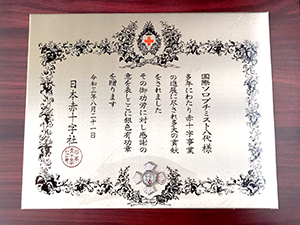 国際ソロプチミスト八代 様
多年にわたり赤十字事業
の進展に尽され多大の貢献
をされました
その御功労に対し感謝の
意を表しここに銀色有功章
を贈ります
令和三年八月二十一日
日本赤十字社